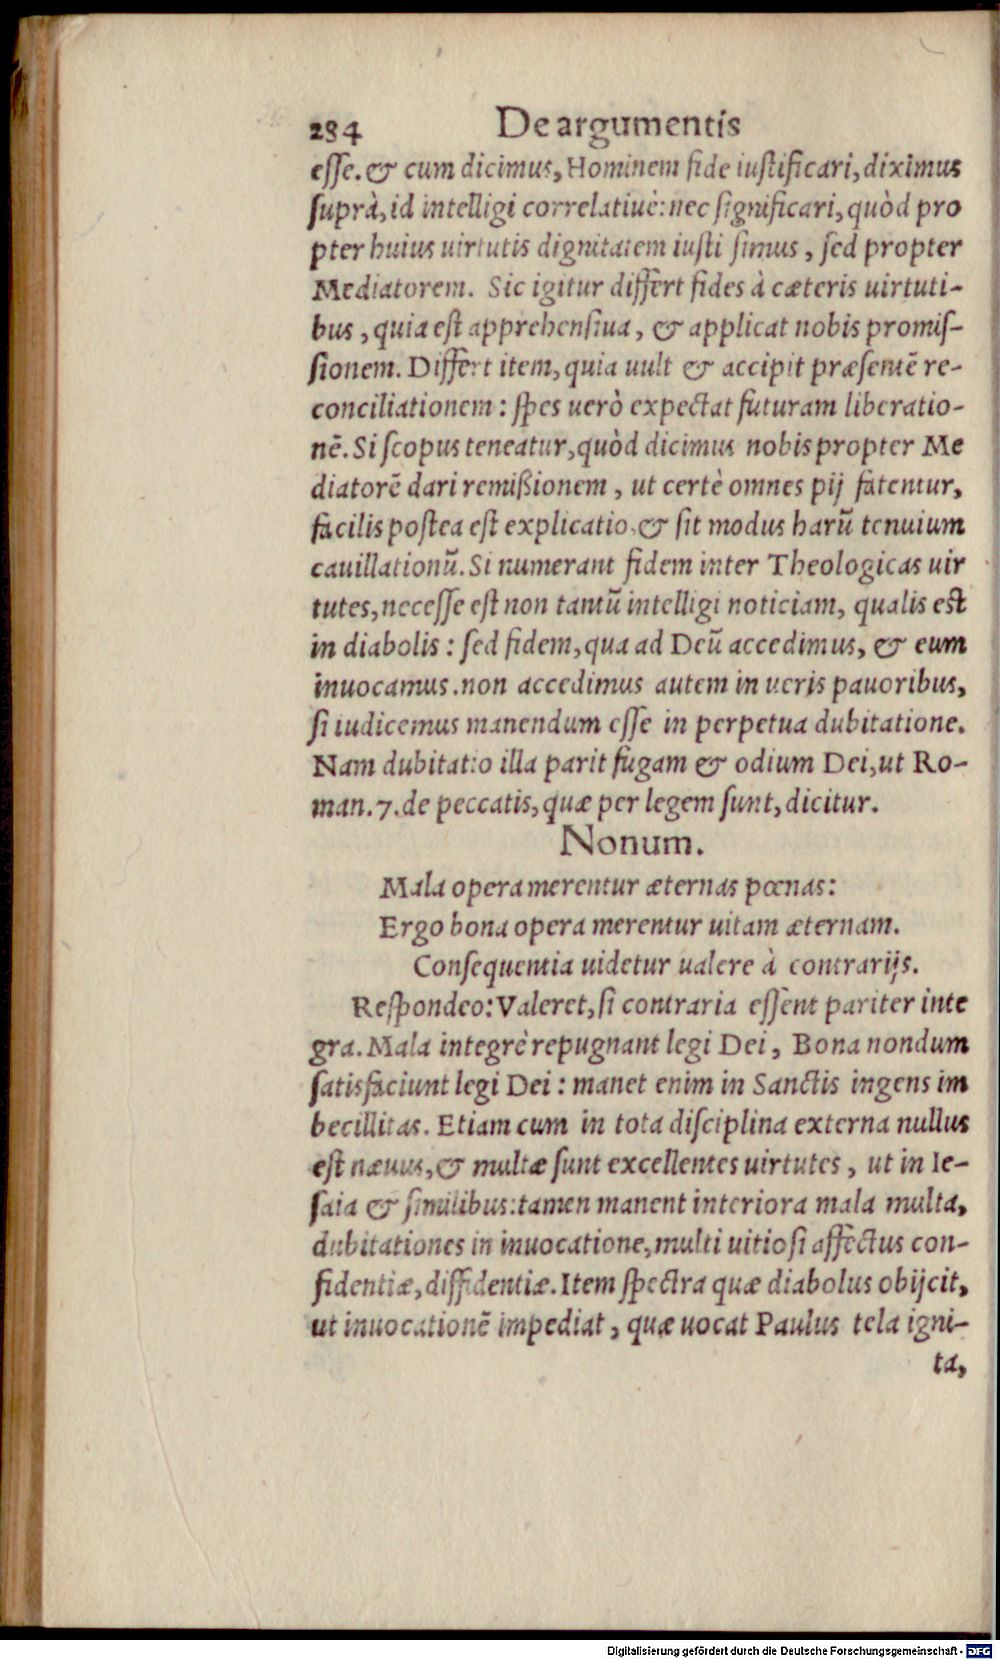 284 De argumentis
esse. & cum dicimus, Hominem fide iustificari, diximus
suprà, id intelligi correlatiuè: nec significari, quòd pro
pter huius uirtutis dignitatem iusti simus, sed propter
Mediatorem. Sic igitur differt fides à cæteris uirtuti-
bus, quia est apprehensiua, & applicat nobis promis-
sionem. Differt item, quia uult & accipit præsentē re-
conciliationem: spes uerò expectat futuram liberatio-
nē. Si scopus teneatur, quòd dicimus nobis propter Me
diatorē dari remißionem, ut certè omnes pij fatentur,
facilis postea est explicatio, & sit modus harū tenuium
cauillationū. Si numerant fidem inter Theologicas uir
tutes, necesse est non tantū intelligi noticiam, qualis est
in diabolis: sed fidem, qua ad Deū accedimus, & eum
inuocamus. non accedimus autem in ueris pauoribus,
si iudicemus manendum esse in perpetua dubitatione.
Nam dubitatio illa parit fugam & odium Dei, ut Ro-
man. 7. de peccatis, quæ per legem sunt, dicitur.
Nonum.
Mala opera merentur æternas pœnas:
Ergo bona opera merentur uitam æternam.
Consequentia uidetur ualere à contrarijs.
Respondeo: Valeret, si contraria essent pariter inte
gra. Mala integrè repugnant legi Dei, Bona nondum
satisfaciunt legi Dei: manet enim in Sanctis ingens im
becillitas. Etiam cum in tota disciplina externa nullus
est næuus, & multæ sunt excellentes uirtutes, ut in Ie-
saia & similibus: tamen manent interiora mala multa,
dubitationes in inuocatione, multi uitiosi affectus con-
fidentiæ, diffidentiæ. Item spectra quæ diabolus obijcit,
ut inuocationē impediat, quæ uocat Paulus tela igni-
ta,
Digitalisierung gefördert durch die Deutsche Forschungsgemeinschaft - DFG